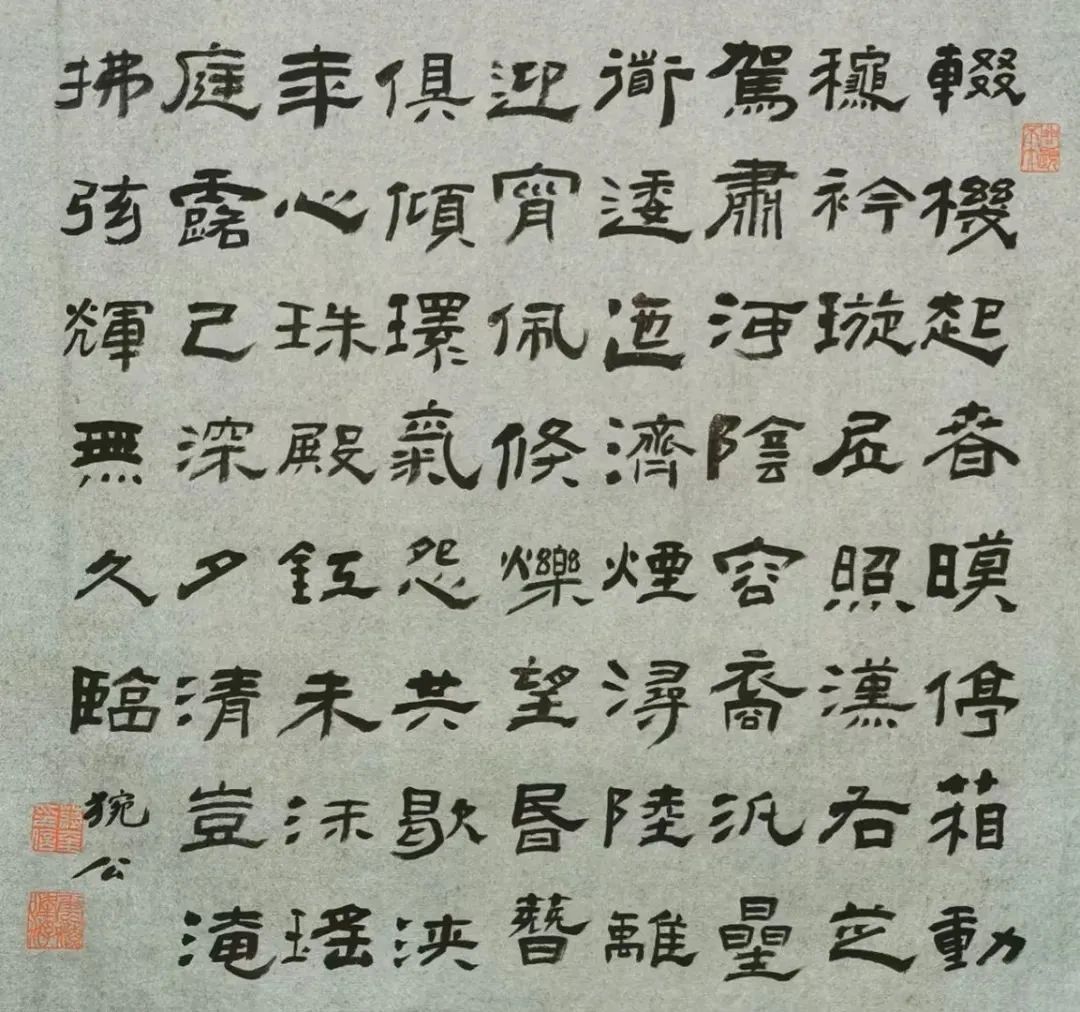 輟機起春暯停箱動
龝衿璇居照漢右芝
駕肅河陰容裔汎曐
衜逶迤濟煙潯陸離
迎宵佩倏爍望昏簪
俱傾環氣怨共歇浹
年心珠殿釭未沬瑤
庭露已深夕清豈淹
拂弦輝無久臨
公